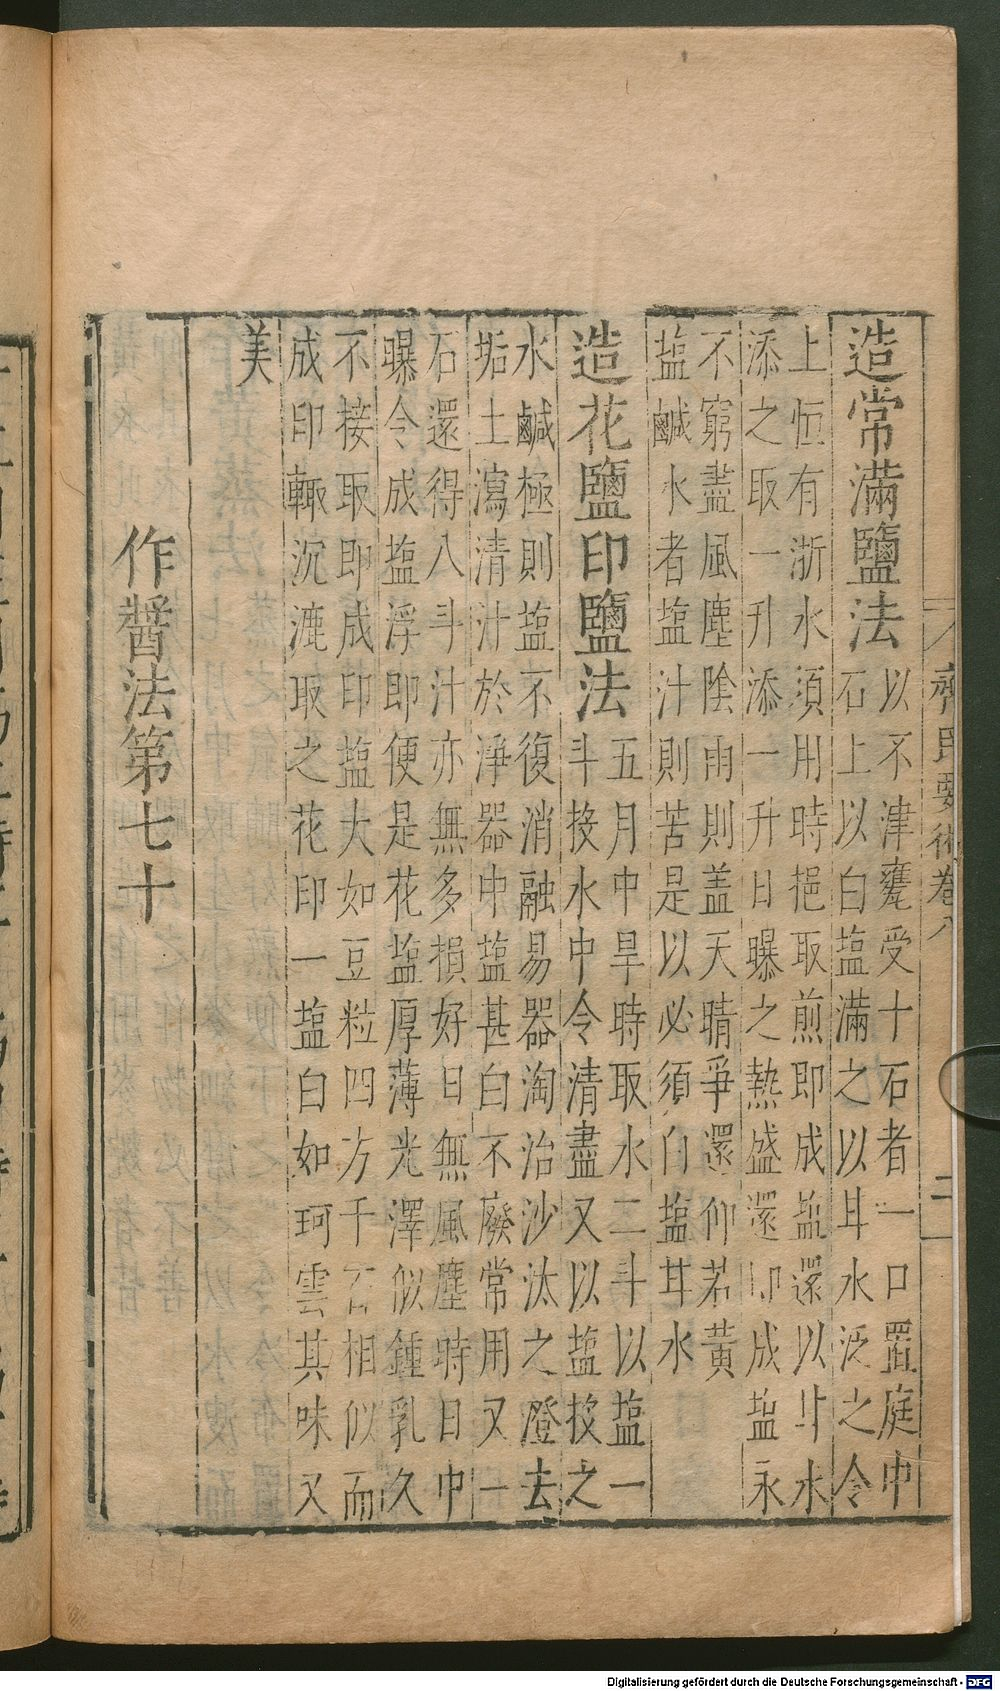 齊民要術卷八
二
造常滿鹽法
以不津甕受十石者一口置庭中
石上以白塩滿之以甘水泛之令
上恒有浙水須用時挹取煎即成塩還以甘水
添之取一升添一升日曝之熱盛還即成塩永
不窮盡風塵陰雨則盖天晴爭還仰若黃
塩鹹水者塩汁則苦是以必須白塩甘水
造花鹽印鹽法
五月中旱時取水二斗以塩一
斗投水中令清盡又以塩投之
水鹹極則塩不復消融易器淘治沙汰之澄去
垢土瀉清汁於淨器中塩甚白不廢常用又一
石還得八斗汁亦無多損好日無風塵時日中
曝令成塩浮即便是花塩厚薄光澤似鍾乳久
不接取即成印塩大如豆粒四方千百相似而
成印輙沉漉取之花印一塩白如珂雪其味又
美
作醬法第七十
Digitalisierung gefördert durch die Deutsche Forschungsgemeinschaft - DFG